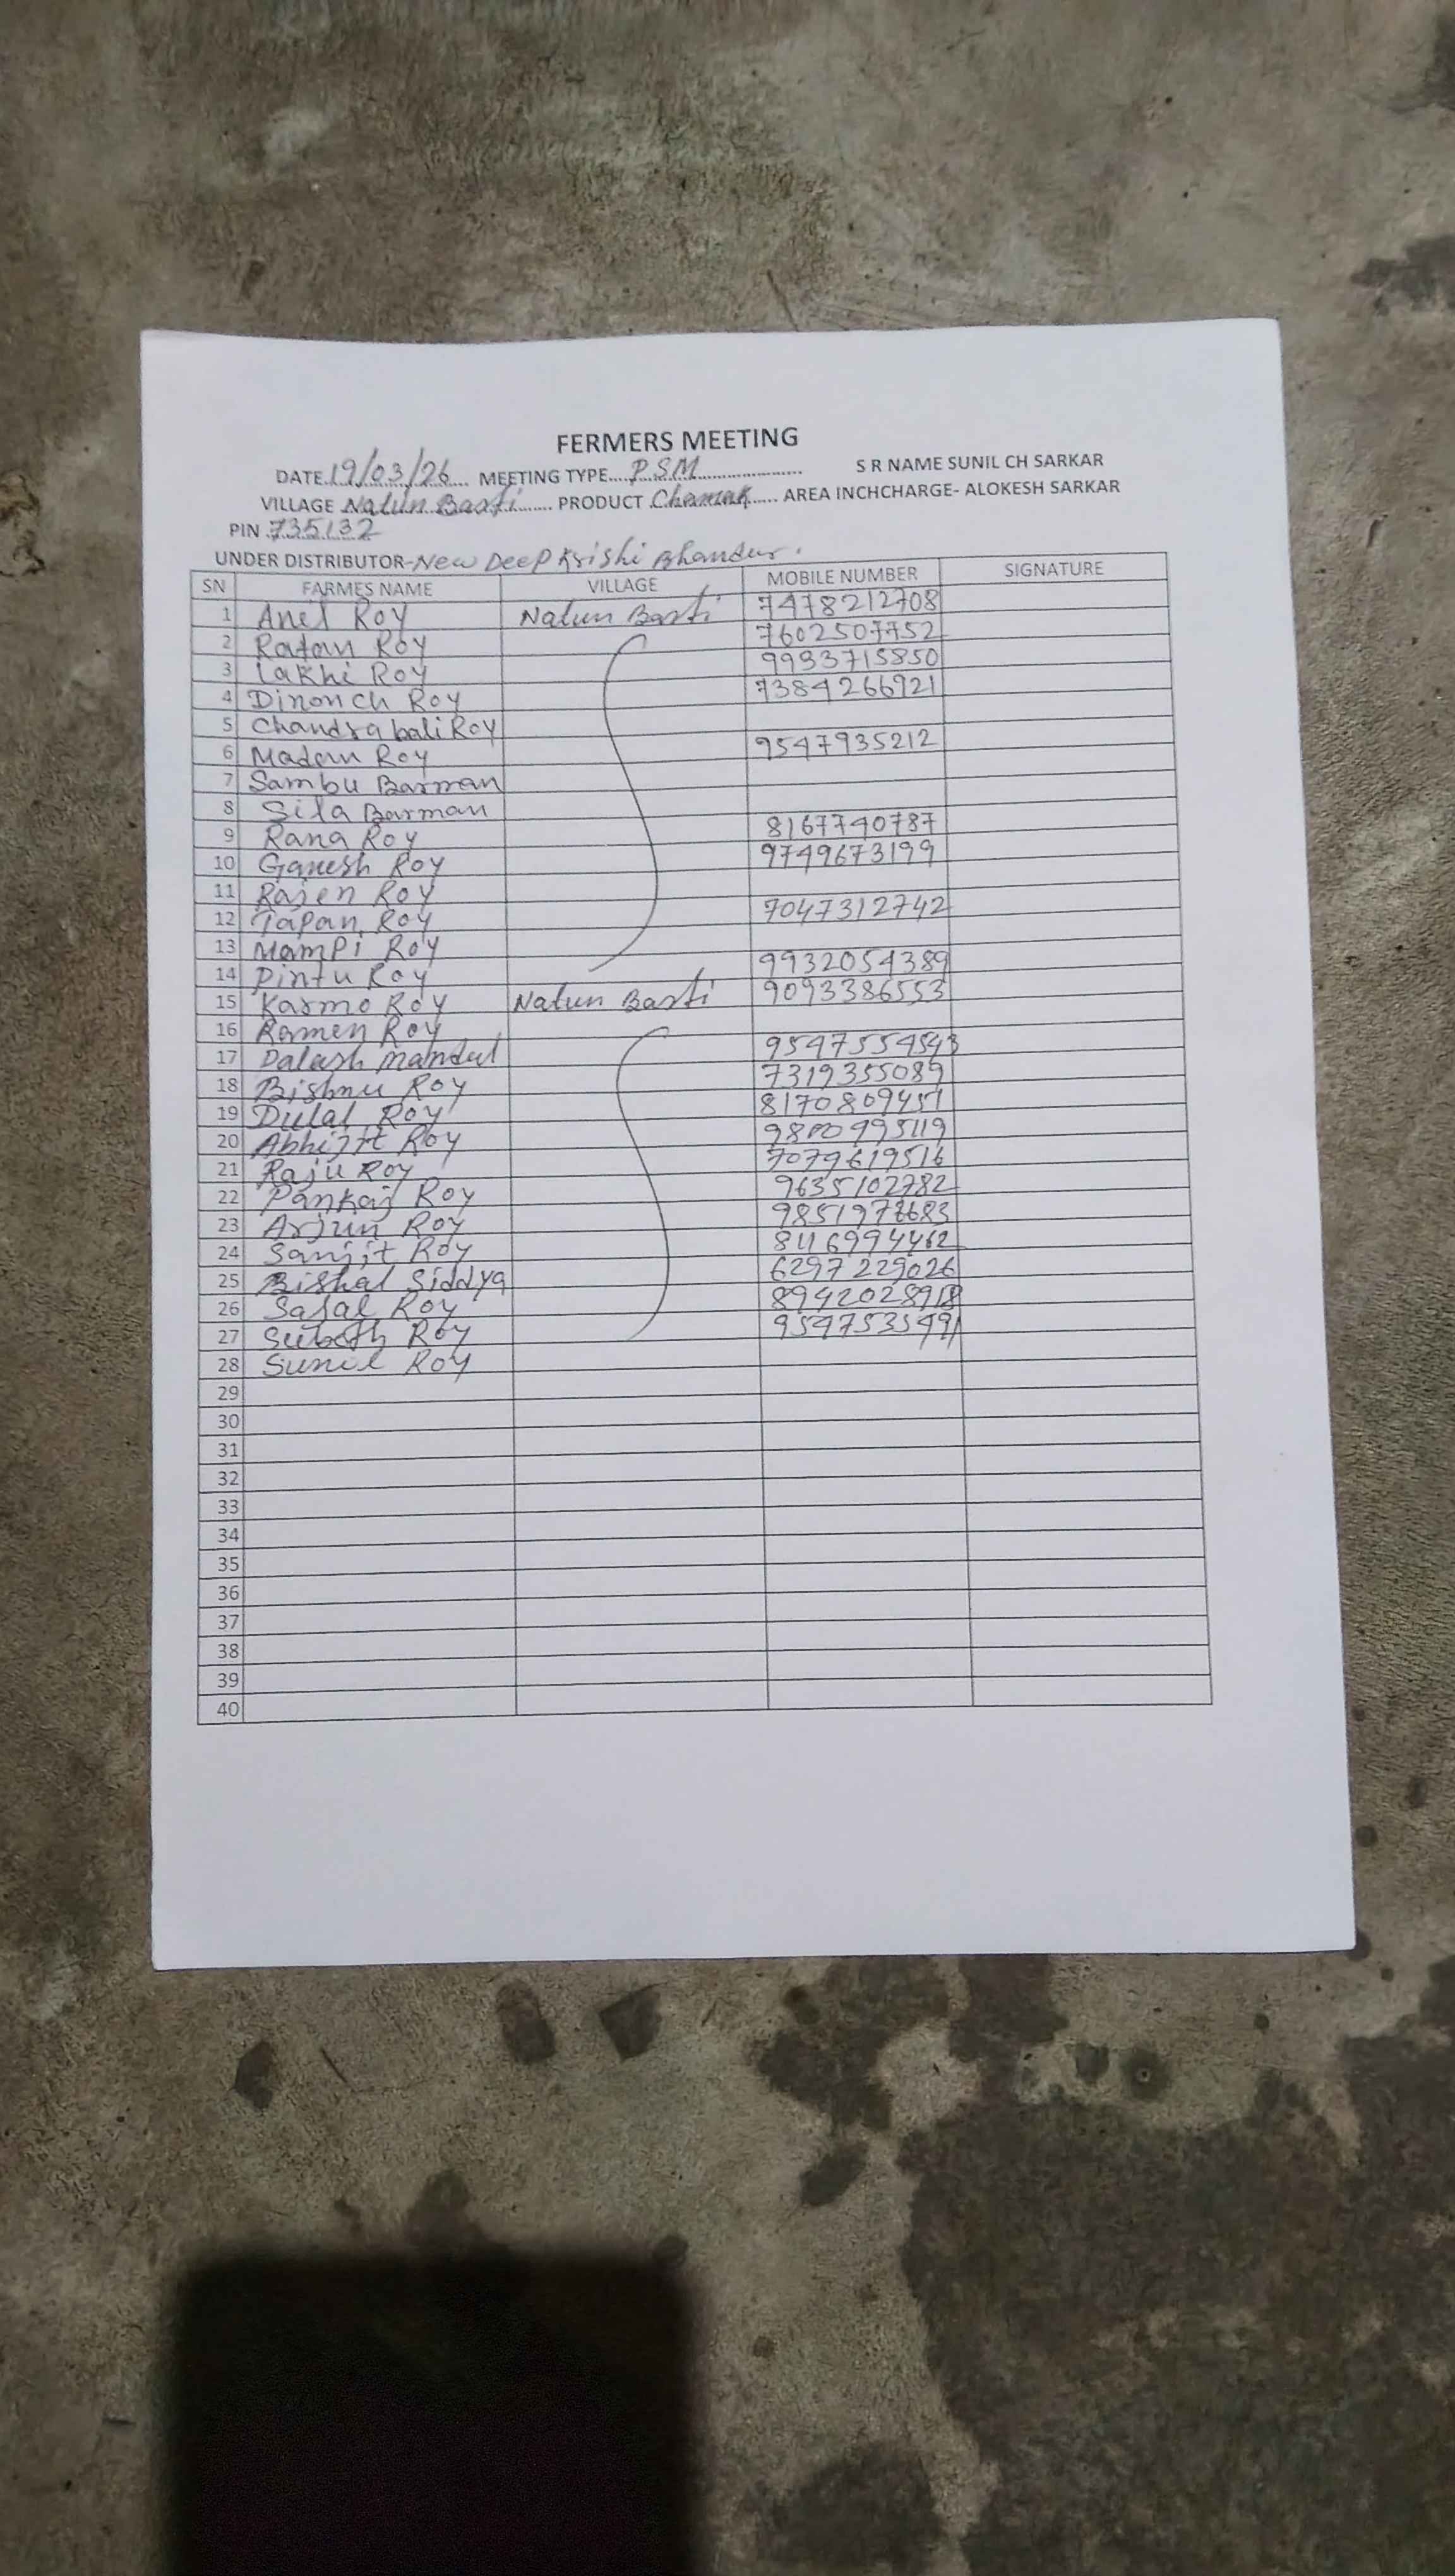 FERMERS MEETING
DATE 19/03/26 MEETING TYPE P.S.M S R NAME SUNIL CH SARKAR
VILLAGE Natun Basti PRODUCT Chamak AREA INCHCHARGE- ALOKESH SARKAR
PIN 735132
UNDER DISTRIBUTOR- New Deep Krishi Bhandur.
SN FARMES NAME VILLAGE MOBILE NUMBER SIGNATURE
1 Anel Roy Natun Basti 7478212708
2 Ratan Roy 7602507752
3 Lakhi Roy 9933715850
4 Dinonch Roy 7384266921
5 Chandrabali Roy
6 Madan Roy 9547935212
7 Sambu Barman
8 Sila Barman
9 Rana Roy 8167740787
10 Ganesh Roy 9749673199
11 Rajen Roy
12 Tapan Roy 7047312742
13 Mampi Roy
14 Pintu Roy 9932054389
15 Karmo Roy Natun Basti 9093386553
16 Ramen Roy
17 Dalash Mandal
18 Bishnu Roy 7319355089
19 Dulal Roy 8170809451
20 Abhijit Roy
21 Raju Roy 7079619516
22 Pankaj Roy 9635102782
23 Arjun Roy
24 Sanjit Roy 8116994462
25 Bishal Siddya 6297229026
26 Sajal Roy
27 Suboth Roy
28 Sunil Roy
29
30
31
32
33
34
35
36
37
38
39
40